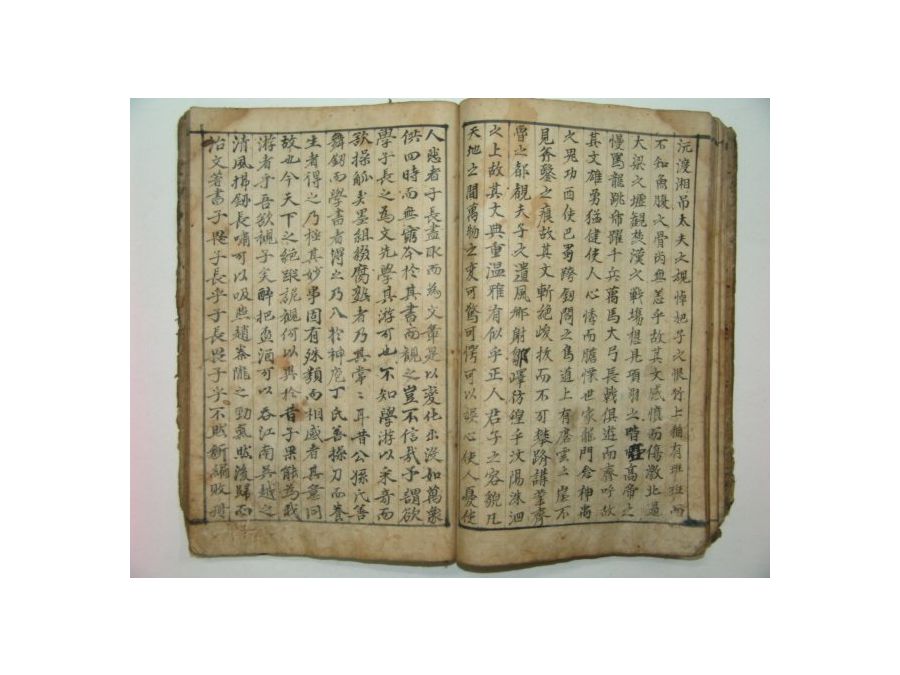 沅渡湘吊太夫之魂悼妃子之恨竹上猶有班班而
不知魚腹之骨尚無恙乎故其文感憤而傷激北過
大梁之墟觀楚漢之戰場想見項羽之喑啞高帝之
慢罵龍跳乕躍千兵萬馬大弓長戟俱遊而齊呼故
其文雄勇猛健使人心悸而膽慄世家龍門念神禹
之鬼功西使巴蜀跨劒閣之鳥道上有摩雲之崖不
見斧鑿之痕故其文斬絕峻拔而不可攀躋講業齊
魯之都覩夫子之遺風鄉射鄒嶧彷徨乎汶陽洙泗
之上故其文典重溫雅有似乎正人君子之容貌凡
天地之間萬物之変可驚可愕可以娛心使人憂使
人悲者子長盡取而為文章是以變化出沒如萬象
供四時而無窮今於其書而觀之豈不信哉予謂欲
學子長之為文先學其游可也不知學游以采奇而
欲操觚弄墨組綴腐熟者乃其常〻耳昔公孫氏善
舞劒而學書者得之乃入於神庖丁氏善操刀而養
生者得之乃極其妙事固有殊類而相感者其意同
故也今天下之絕蹤詭觀何以異於昔子果能為我
游者乎吾欲觀子矣醉把盃酒可以吞江南吳越之
清風拂劒長嘯可以吸燕趙秦隴之勁氣然後歸而
治文著書子畏子長乎子長畏子乎不然斷編敗冊